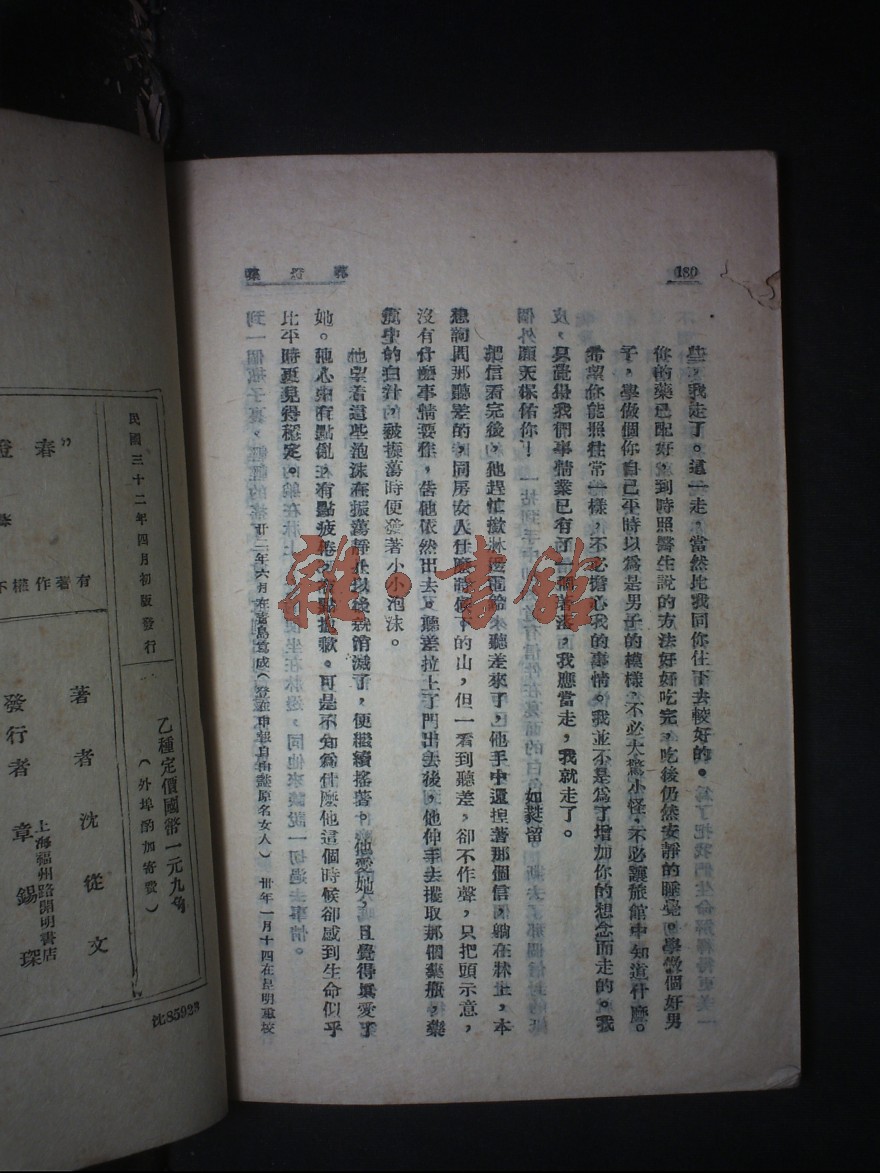 180
些，我走了。這一走，當然比我同你住下去較好的。
你的藥已配好，到時照醫生說的方法好好吃完，吃後仍然安靜的睡覺。學做個好男
子，學做個你自己平時以爲是男子的模樣，不必大驚小怪，不必讓旅館中知道什麼。
希望你能照往常一樣，不必擔心我的事情。我並不是爲了增加你的想念而走的。我
只覺得我們事情業已有了一個着落，我應當走，我就走了。
願天保佑你！
如蕤留
把信看完後，他趕忙撳牀邊電鈴，聽差來了，他手中還揑著那個信，躺在牀上，本
想詢問那聽差的，同房女人什麼時候下的山，但一看到聽差，卻不作聲，只把頭示意，
沒有什麼事情要作，告他依然出去。聽差拉上了門出去後，他伸手去攫取那個藥瓶，藥
瓶中的白汁，被振蕩時便發著小小泡沫。
他望着這些泡沫在振蕩靜止以後就消滅了，便繼續搖著。他愛她，且覺得眞愛了
她。他心中有點亂，有點疲倦，有點抱歉。可是不知爲什麼他這個時候卻感到生命似乎
比平時更見得穩定。
廿二年六月在靑島寫成（登在申報自由談原名女人）
卅年一月十四在昆明重校
春
”
有著作權不
著者沈從文
發行者章錫琛
上海福州路開明書店
民國三十二年四月初版發行
乙種定價國幣一元九角
（外埠酌加寄費）
沈85923
雜·書館